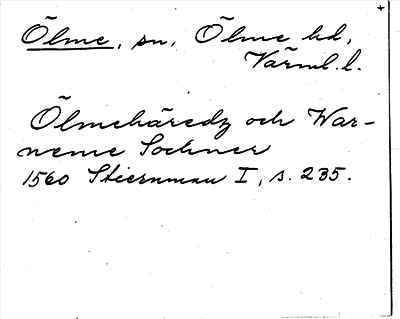 Ölme, sn, Ölme hd,
Värml.l.
Ölmehäredz och War-
neme Sochner
1560 Stiernman I, s. 235.